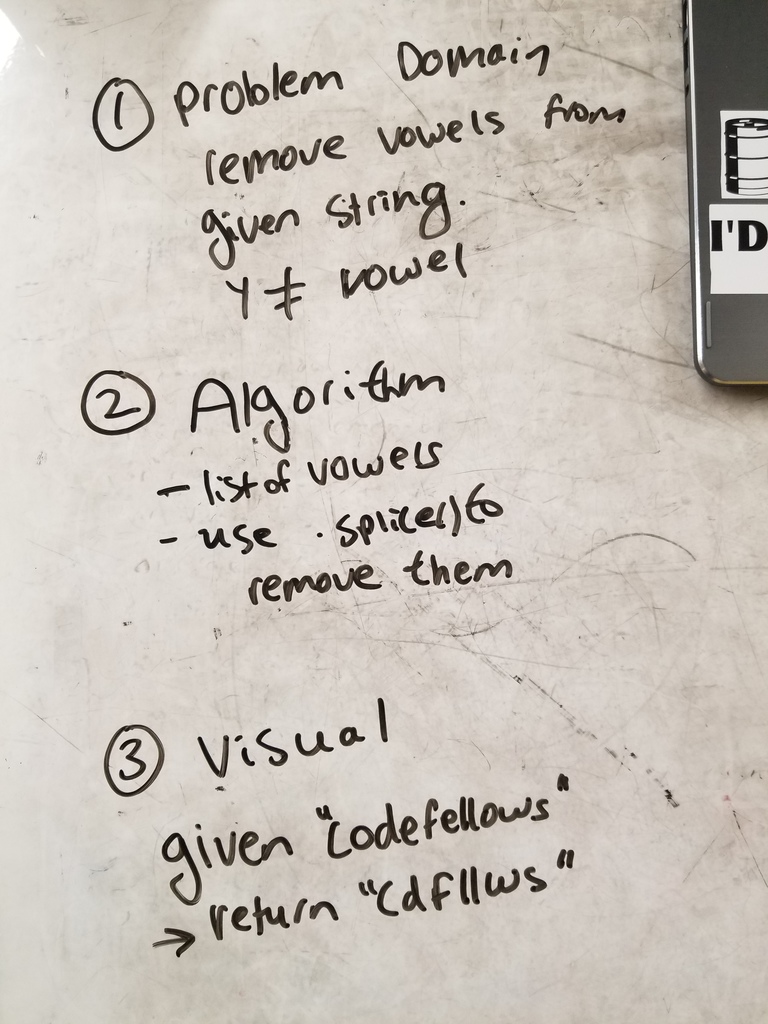 ① Problem Domain
remove vowels from
given string.
Y ≠ vowel
I'D
② Algorithm
- list of vowels
- use .splice() to
remove them
③ Visual
given "Codefellows"
→ return "Cdfllws"